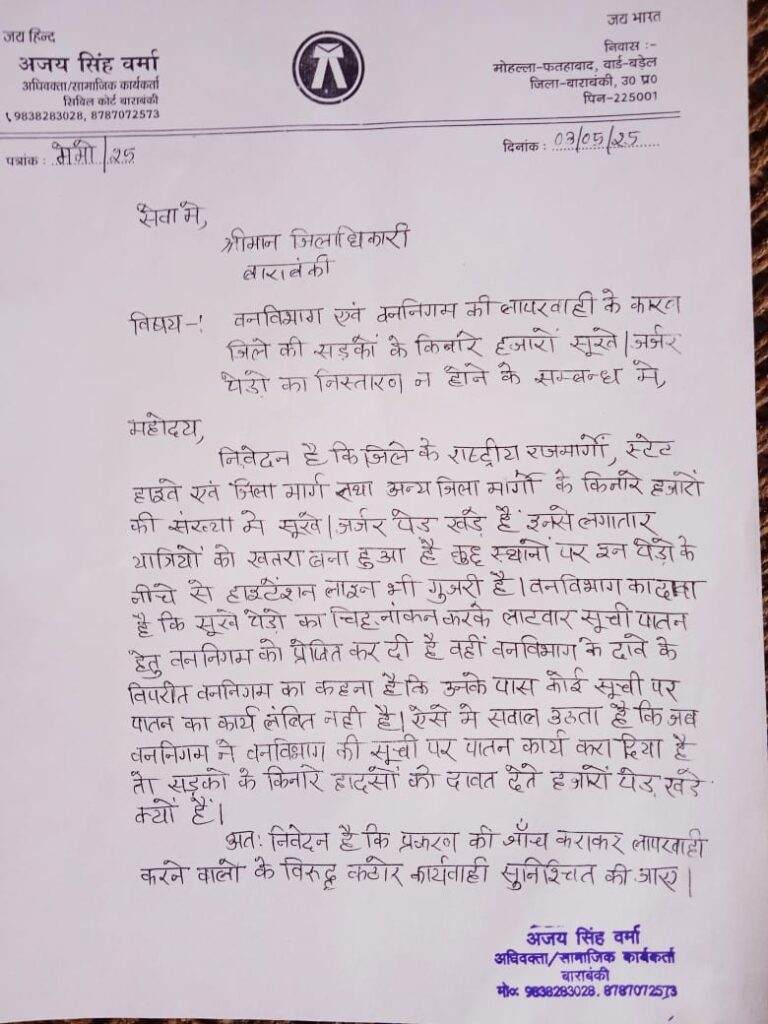 जय हिन्द
जय भारत
अजय सिंह वर्मा
अधिवक्ता/सामाजिक कार्यकर्ता
सिविल कोर्ट बाराबंकी
9838283028, 8787072573
निवास :-
मोहल्ला-फतहाबाद, वार्ड-बड़ेल
जिला-बाराबंकी, उ0 प्र0
पिन-225001
पत्रांक : मेमो/25
दिनांक : 03/05/25
सेवा मे,
श्रीमान जिलाधिकारी
बाराबंकी
विषय-! वनविभाग एवं वननिगम की लापरवाही के कारण
जिले की सड़कों के किनारे हजारों सूखे/जर्जर
पेड़ो का निस्तारण न होने के सम्बन्ध मे,
महोदय,
निवेदन है कि जिले के राष्ट्रीय राजमार्गो, स्टेट
हाइवे एवं जिला मार्ग तथा अन्य जिला मार्गो के किनारे हजारों
की संख्या मे सूखे/जर्जर पेड़ खड़े हैं इनसे लगातार
यात्रियों को खतरा बना हुआ है कुछ स्थानों पर इन पेड़ो के
नीचे से हाइटेंशन लाइन भी गुजरी है। वनविभाग का दावा
है कि सूखे पेड़ो का चिह्नांकन करके लाटवार सूची पातन
हेतु वननिगम को प्रेषित कर दी है वहीं वनविभाग के दावे के
विपरीत वननिगम का कहना है कि उनके पास कोई सूची पर
पातन का कार्य लंबित नही है। ऐसे मे सवाल उठता है कि जब
वननिगम ने वनविभाग की सूची पर पातन कार्य करा दिया है
तो सड़को के किनारे हादसों को दावत देते हजारों पेड़ खड़े
क्यों हैं।
अतः निवेदन है कि प्रकरण की जाँच कराकर लापरवाही
करने वालो के विरुद्ध कठोर कार्यवाही सुनिश्चित की जाए।
अजय सिंह वर्मा
अधिवक्ता/सामाजिक कार्यकर्ता
बाराबंकी
मो० 9838283028, 8787072573